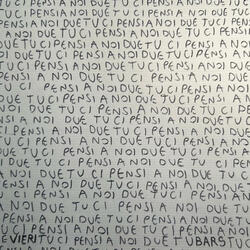 A NOI DUE TU CI PENSI A NOI DUE TU CI
PENSI A NOI DUE TU CI PENSI A NOI DUE TU
A NOI DUE TU CI PENSI A NOI DUE TU CI P
DUE TU CI PENSI A NOI DUE TU CI PENSI
CI PENSI A NOI DUE TU CI PENSI A NOI
PENSI A NOI DUE TU CI PENSI A NOI DUE
A NOI DUE TU CI PENSI A NOI DUE TU CI
DUE TU CI PENSI A NOI DUE TU CI PENSI
TU CI PENSI A NOI DUE TU CI PENSI A
PENSI A NOI DUE TU CI PENSI A NOI DUE
A NOI DUE TU CI PENSI A NOI DUE TU
DUE TU CI PENSI A NOI DUE TU CI PENSI
CI PENSI A NOI DUE TU CI PENSI A NOI
PENSI A NOI DUE TU CI PENSI A NOI
NOI DUE TU CI PENSI A NOI DUE TU CI
TU CI PENSI A NOI DUE